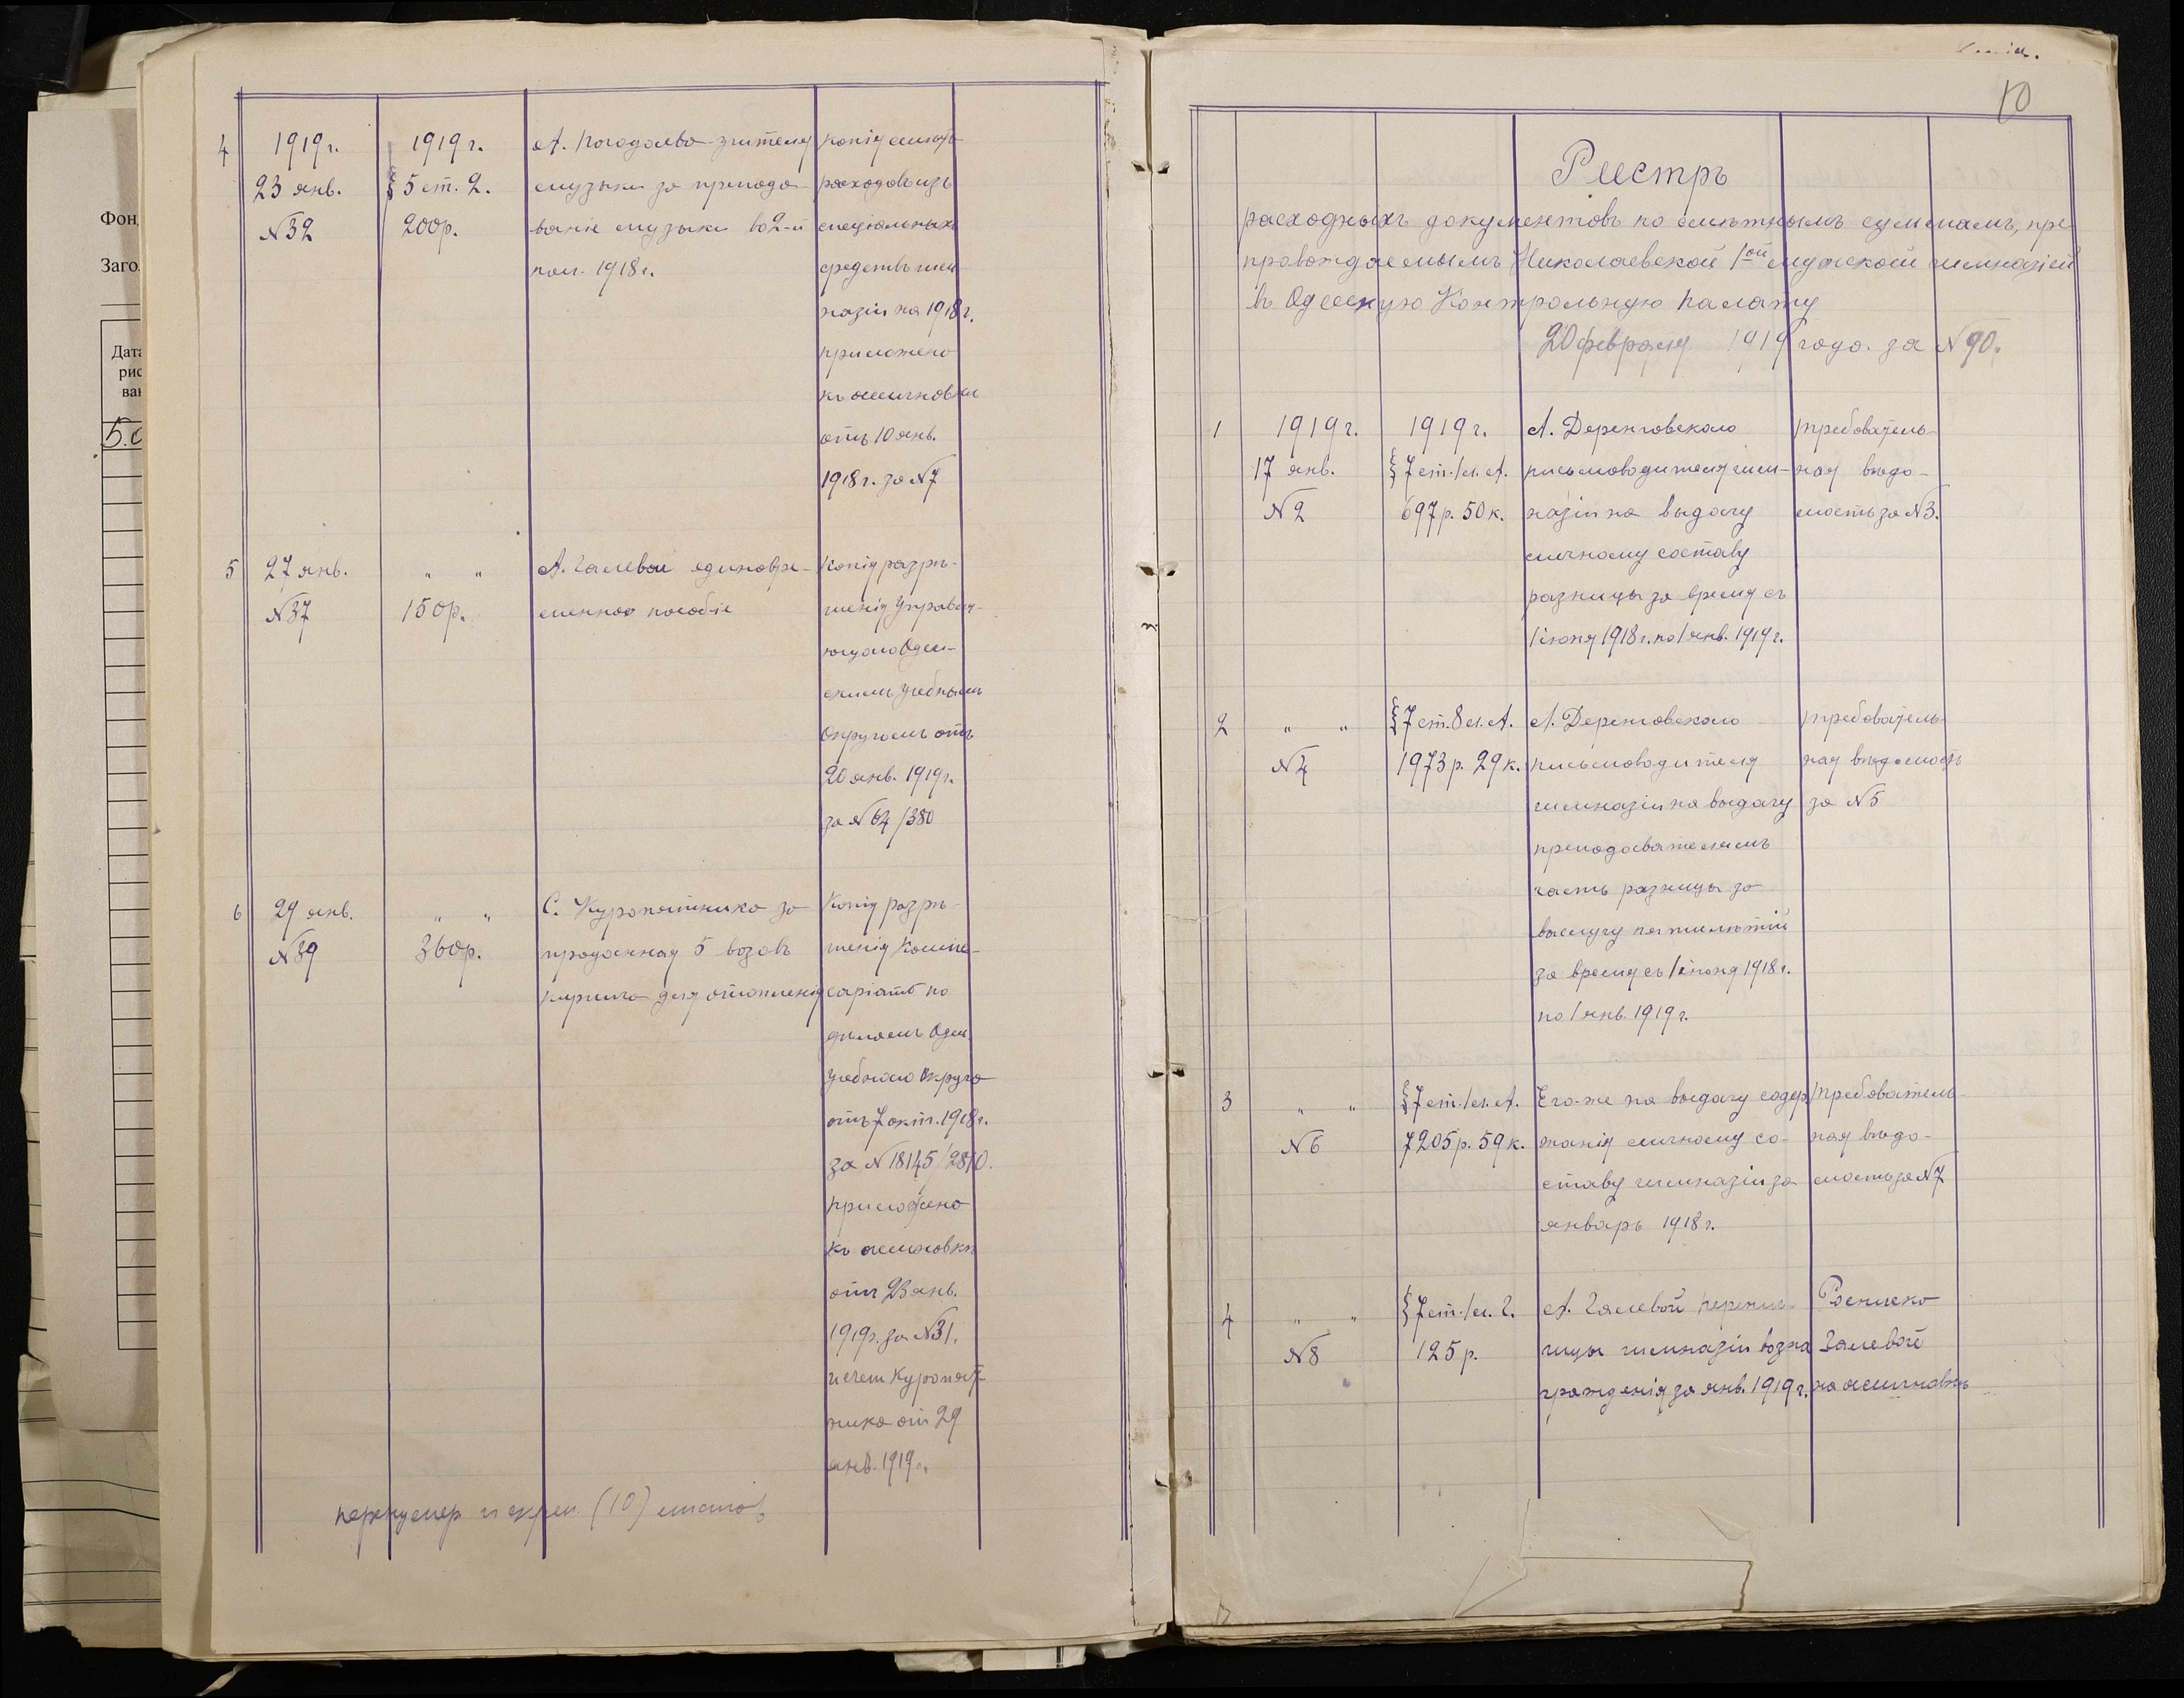 Фон
Заго
Дата
рис
ван
5.0
4
1919 г.
23 янв.
№32
1919 г.
§ 5 ст. 2.
200р.
А. Погодаева учителя
музыки за препода-
ваніе музыки во 2-й
пол. 1918 г.
Копія смѣты
расходовъ изъ
спеціальныхъ
средствъ гим
назіи на 1918 г.
приложена
къ ассигновкѣ
отъ 10 янв.
1918 г. за №7
5
27 янв.
№37
" "
150р.
А. Галевой единовре-
менное пособіе
Копія разрѣ-
шенія Управля-
ющаго Одес-
скимъ Учебнымъ
Округомъ отъ
20 янв. 1919 г.
за №64/380
6
29 янв.
№39
" "
360р.
С. Куропятника за
проданная 5 возовъ
кирпича для отопленія
Копія разрѣ-
шенія Комис-
саріата по
дѣламъ Одес.
Учебнаго Округа
отъ 7 окт. 1918 г.
за №18145/2810.
приложена
къ ассигновкѣ
отъ 23 янв.
1919 г. за №31.
и счетъ Куропят-
ника от 29
янв. 1919 г.
перенумер и скреп. (10) листовъ
10
Реестръ
расходныхъ документовъ по смѣтнымъ суммамъ, пре
провождаемымъ Николаевской 1ой мужской гимназіей
въ Одесскую Контрольную Палату
20 февраля 1919 года за №90.
1
1919 г.
17 янв.
№2
1919 г.
§ 7 ст. 1 л. А.
697р. 50к.
А. Деренговскаго
письмоводителя гим-
назіи на выдачу
личному составу
разницы за время съ
1 іюня 1918 г. по 1 янв. 1919 г.
Требователь-
ная вѣдо-
мость за №3.
2
" "
№4
§ 7 ст. 8 л. А.
1973р. 29к.
А. Деренговскаго
письмоводителя
гимназіи на выдачу
преподавателямъ
часть разницы за
выслугу пятилѣтій
за время съ 1 іюня 1918 г.
по 1 янв. 1919 г.
Требователь-
ная вѣдомость
за №5
3
" "
№6
§ 7 ст. 1 л. А.
7205р. 59к.
Его-же на выдачу содер
жанія личному со-
ставу гимназіи за
январь 1918 г.
Требователь-
ная вѣдо-
мость за №7
4
" "
№8
§ 7 ст. 1 л. 2.
125р.
А. Галевой перепис-
чицы гимназіи возна
гражденія за янв. 1919 г.
Росписка
Галевой
на ассигновкѣ